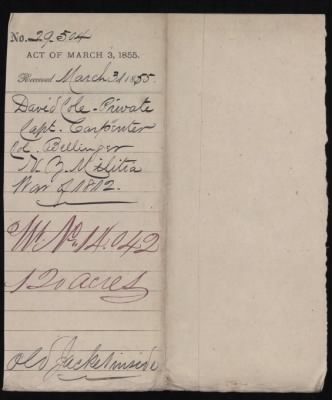 No. 29,504
ACT OF MARCH 3, 1855.
Received March 31 1855.
David Cole - Private
Capt. Carpenter
Col. Bellinger
N. Y. Militia
War of 1812.
Wt. No. 14,042
120 acres
Old Jacket inside